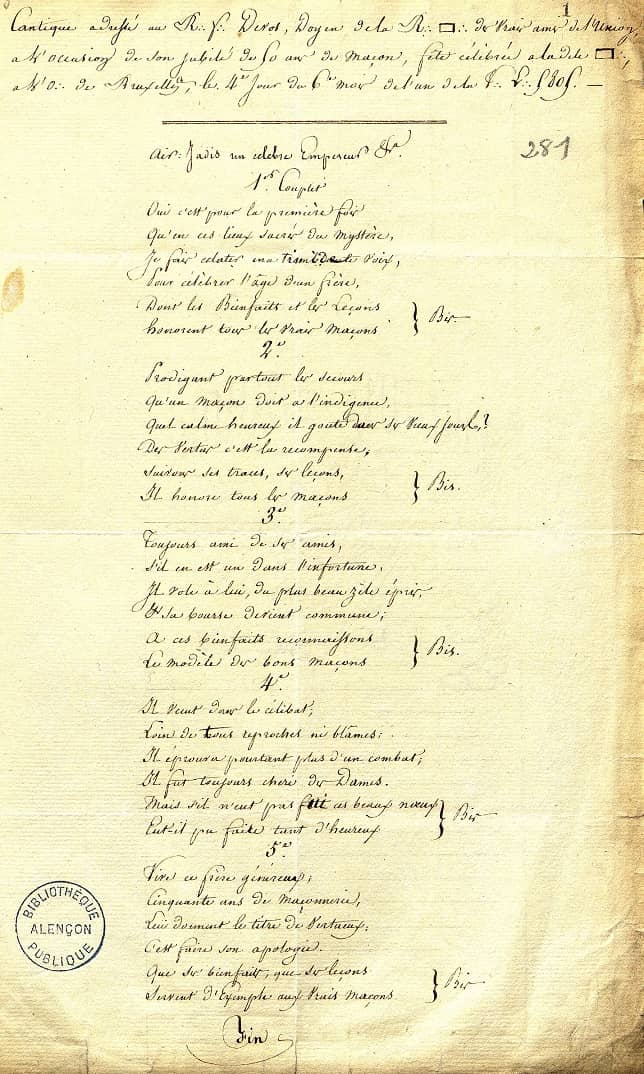 1
Cantique adressé au R∴ f∴ Devos, Doyen de la R∴ □∴ des vrais amis de l'Union,
a l'occasion de son jubilé de 50 ans de maçon, fête célébrée a la dite □∴,
a l'O∴ de Bruxelles, le 4e Jour du 6e mois de l'an de la V∴ L∴ 5805. —
281
Air: Jadis un célebre Empereur &a.
1er. Couplet
Oui c'est pour la première fois
Qu'en ces lieux sacrés du Mystère,
Je fais éclater ma timide voix,
Pour célébrer l'âge d'un frère,
Dont les Bienfaits et les Leçons
honorent tous les Vrais Maçons } Bis.
2e
Prodigant partout les secours
Qu'un Maçon doit a l'indigence,
Quel calme heureux il goute dans ses Vieux Jours,?
Des Vertus c'est la recompense,
Suivons ses traces, ses leçons,
Il honore tous les Maçons } Bis.
3e.
Toujours ami de ses amis,
S'il en est un dans l'infortune,
Il vole à lui, du plus beau zèle épris,
Et sa bourse devient commune;
A ces bienfaits reconnaissons
Le modèle des bons maçons } Bis.
4e.
Il vécut dans le célibat,
Loin de tous reproches ni blâmes;
Il éprouva pourtant plus d'un combat,
Il fut toujours cheri des Dames.
Mais s'il n'eut pas fui ces beaux nœux
Eut-il pu faire tant d'heureux } Bis
5e.
Vive ce frère généreux;
Cinquante ans de maçonnerie,
Lui donnent le titre de Vertueux,
C'est faire son apologie.
Que ses bienfaits, que ses leçons
Servent d'Exemple aux Vrais Maçons } Bis
Fin
BIBLIOTHÈQUE
ALENÇON
PUBLIQUE